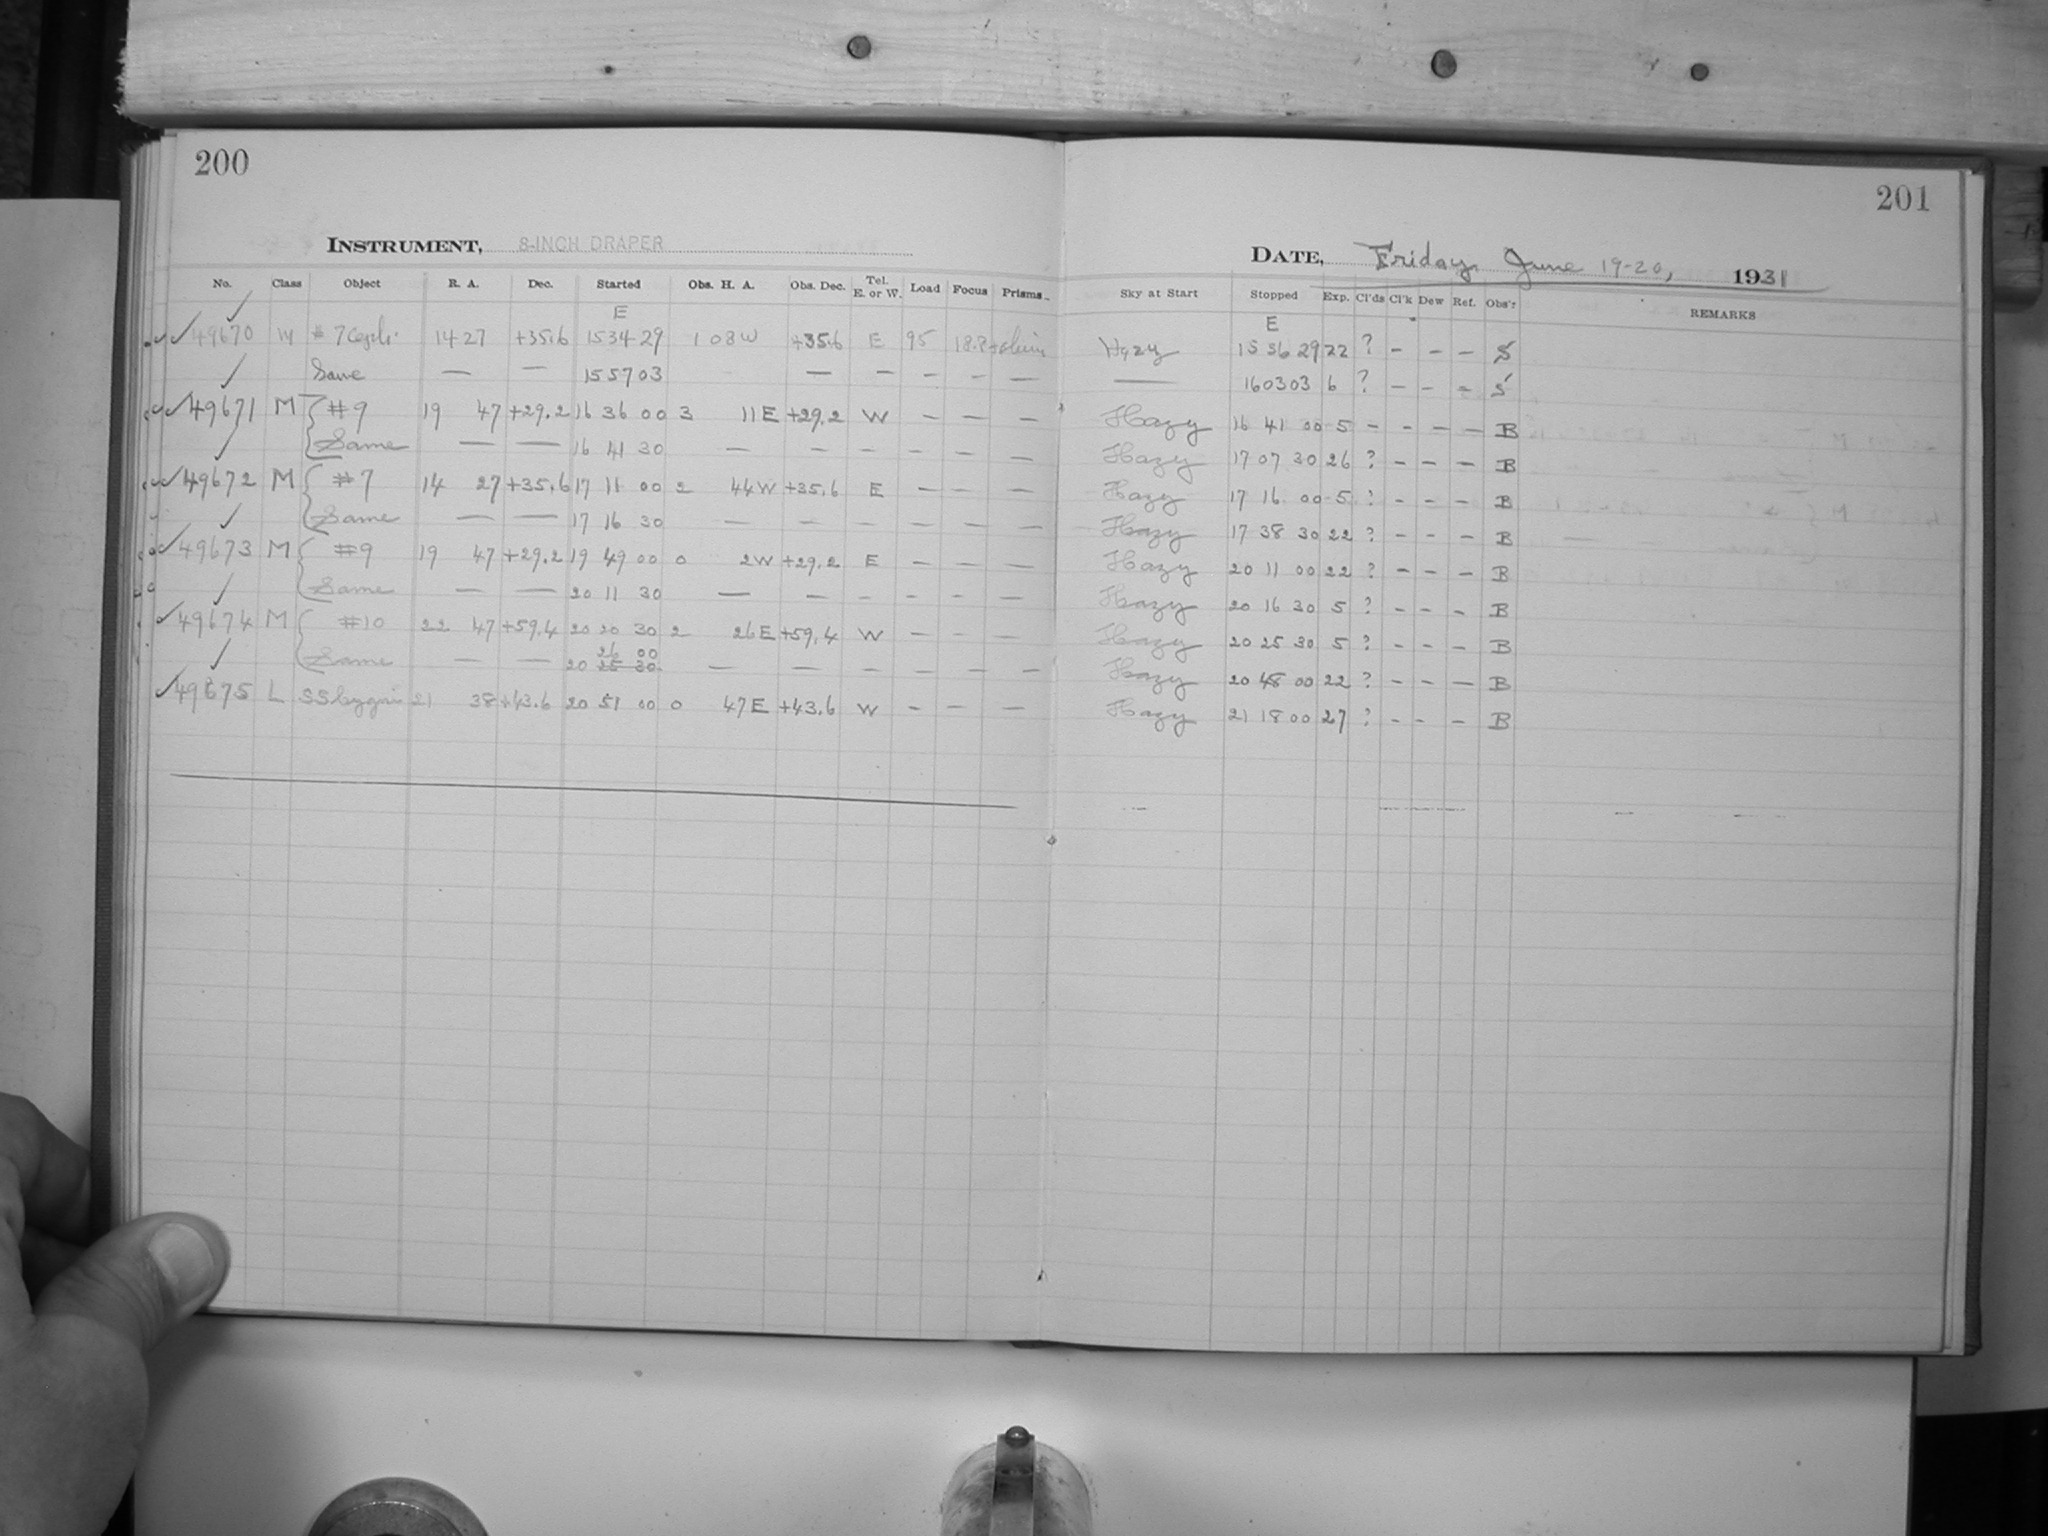 200
201
INSTRUMENT, 8-INCH DRAPER
DATE, Friday June 19-20, 1931
No. Class Object R. A. Dec. Started Obs. H. A. Obs. Dec. Tel. E. or W. Load Focus Prisms Sky at Start Stopped Exp. Cl'ds Cl'k Dew Ref. Obs'r REMARKS
E E
49670 M # 7 14 27 +35.6 15 34 29 1 08 W +35.6 E 95 Hazy 15 56 29 22 ? - - - S
Same — — 15 57 03 — — — — — — 16 03 03 6 ? - - - S
49671 M #9 19 47 +29.2 16 36 00 3 11 E +29.2 W — — — Hazy 16 41 00 5 - - - - B
Same — — 16 41 30 — — — — — — Hazy 17 07 30 26 ? - - - B
49672 M #7 14 27 +35.6 17 11 00 2 44 W +35.6 E — — — Hazy 17 16 00 5 ? - - - B
Same — — 17 16 30 — — — — — — Hazy 17 38 30 22 ? - - - B
49673 M #9 19 47 +29.2 19 49 00 0 2 W +29.2 E — — — Hazy 20 11 00 22 ? - - - B
Same — — 20 11 30 — — — — — — Hazy 20 16 30 5 ? - - - B
49674 M #10 22 47 +59.4 20 20 30 2 26 E +59.4 W — — — Hazy 20 25 30 5 ? - - - B
26 00
Same — — 20 25 30 — — — — — — Hazy 20 48 00 22 ? - - - B
49675 L SS Cygni 21 38 +43.6 20 51 00 0 47 E +43.6 W — — — Hazy 21 18 00 27 ? - - - B